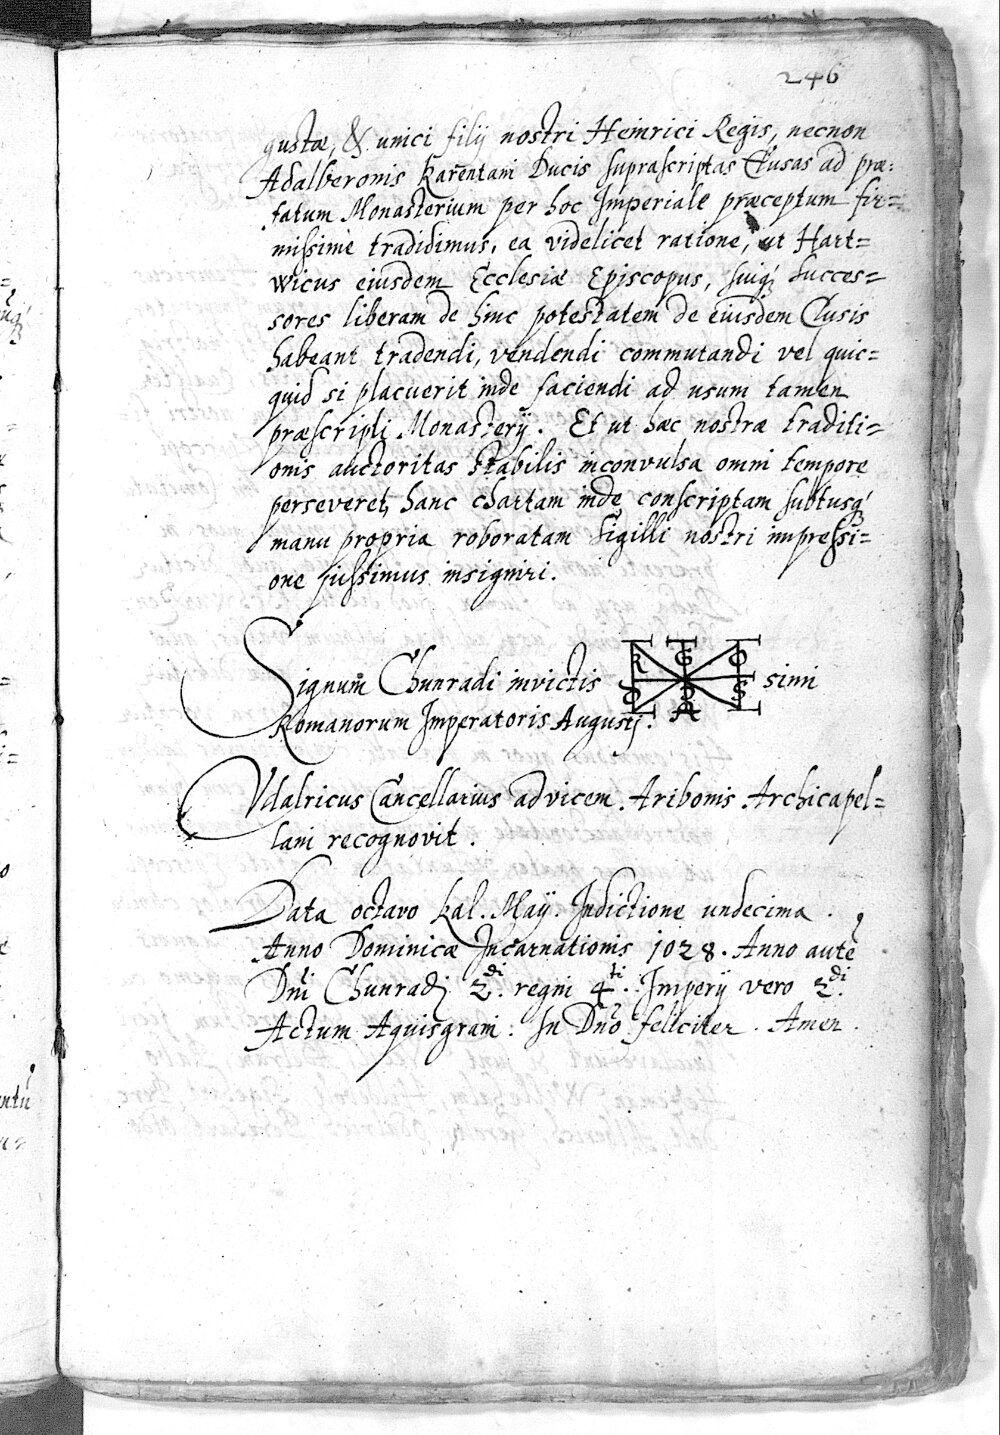 246
gustæ, & unici filij nostri Heinrici Regis, necnon
Adalberonis Karentani Ducis suprascriptas Clusas ad præ:
fatum Monasterium per hoc Imperiale præceptum fir=
missime tradidimus, ea videlicet ratione, ut Hart=
wicus eiusdem Ecclesiæ Episcopus, suiq́ꝫ succes=
sores liberam de hinc potestatem de eiusdem Clusis
habeant tradendi, vendendi commutandi vel quic=
quid si placuerit inde faciendi ad usum tamen
præscripti Monasterij. Et ut hæc nostræ traditi=
onis auctoritas stabilis inconvulsa omni tempore
perseveret, hanc chartam inde conscriptam subtusq́ꝫ
manu propria roboratam Sigilli nostri impressi=
one iussimus insigniri.
Signum̄ Chunradi invictis simi
Romanorum Imperatoris Augustj.
Vdalricus Cancellarius ad vicem Aribonis Archicapel=
lani recognovit.
Data octavo kal. Maij. Indictione undecima.
Anno Dominicæ Incarnationis 1028. Anno autē
Dnī Chunradj 2di. regni 4ti. Imperij vero 2di.
Actum Aquisgrani. In Dnō feliciter. Amen.